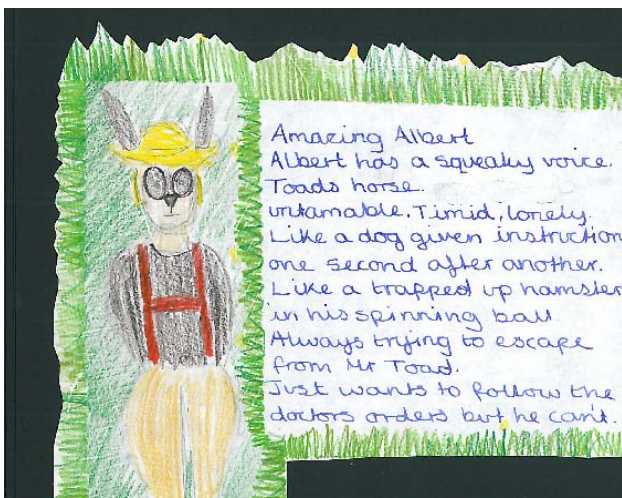 Amazing Albert
Albert has a squeaky voice.
Toads horse.
untamable, Timid, lonely.
Like a dog given instruction
one second after another.
Like a trapped up hamster
in his spinning ball.
Always trying to escape
from Mr Toad.
Just wants to follow the
doctors orders but he can't.